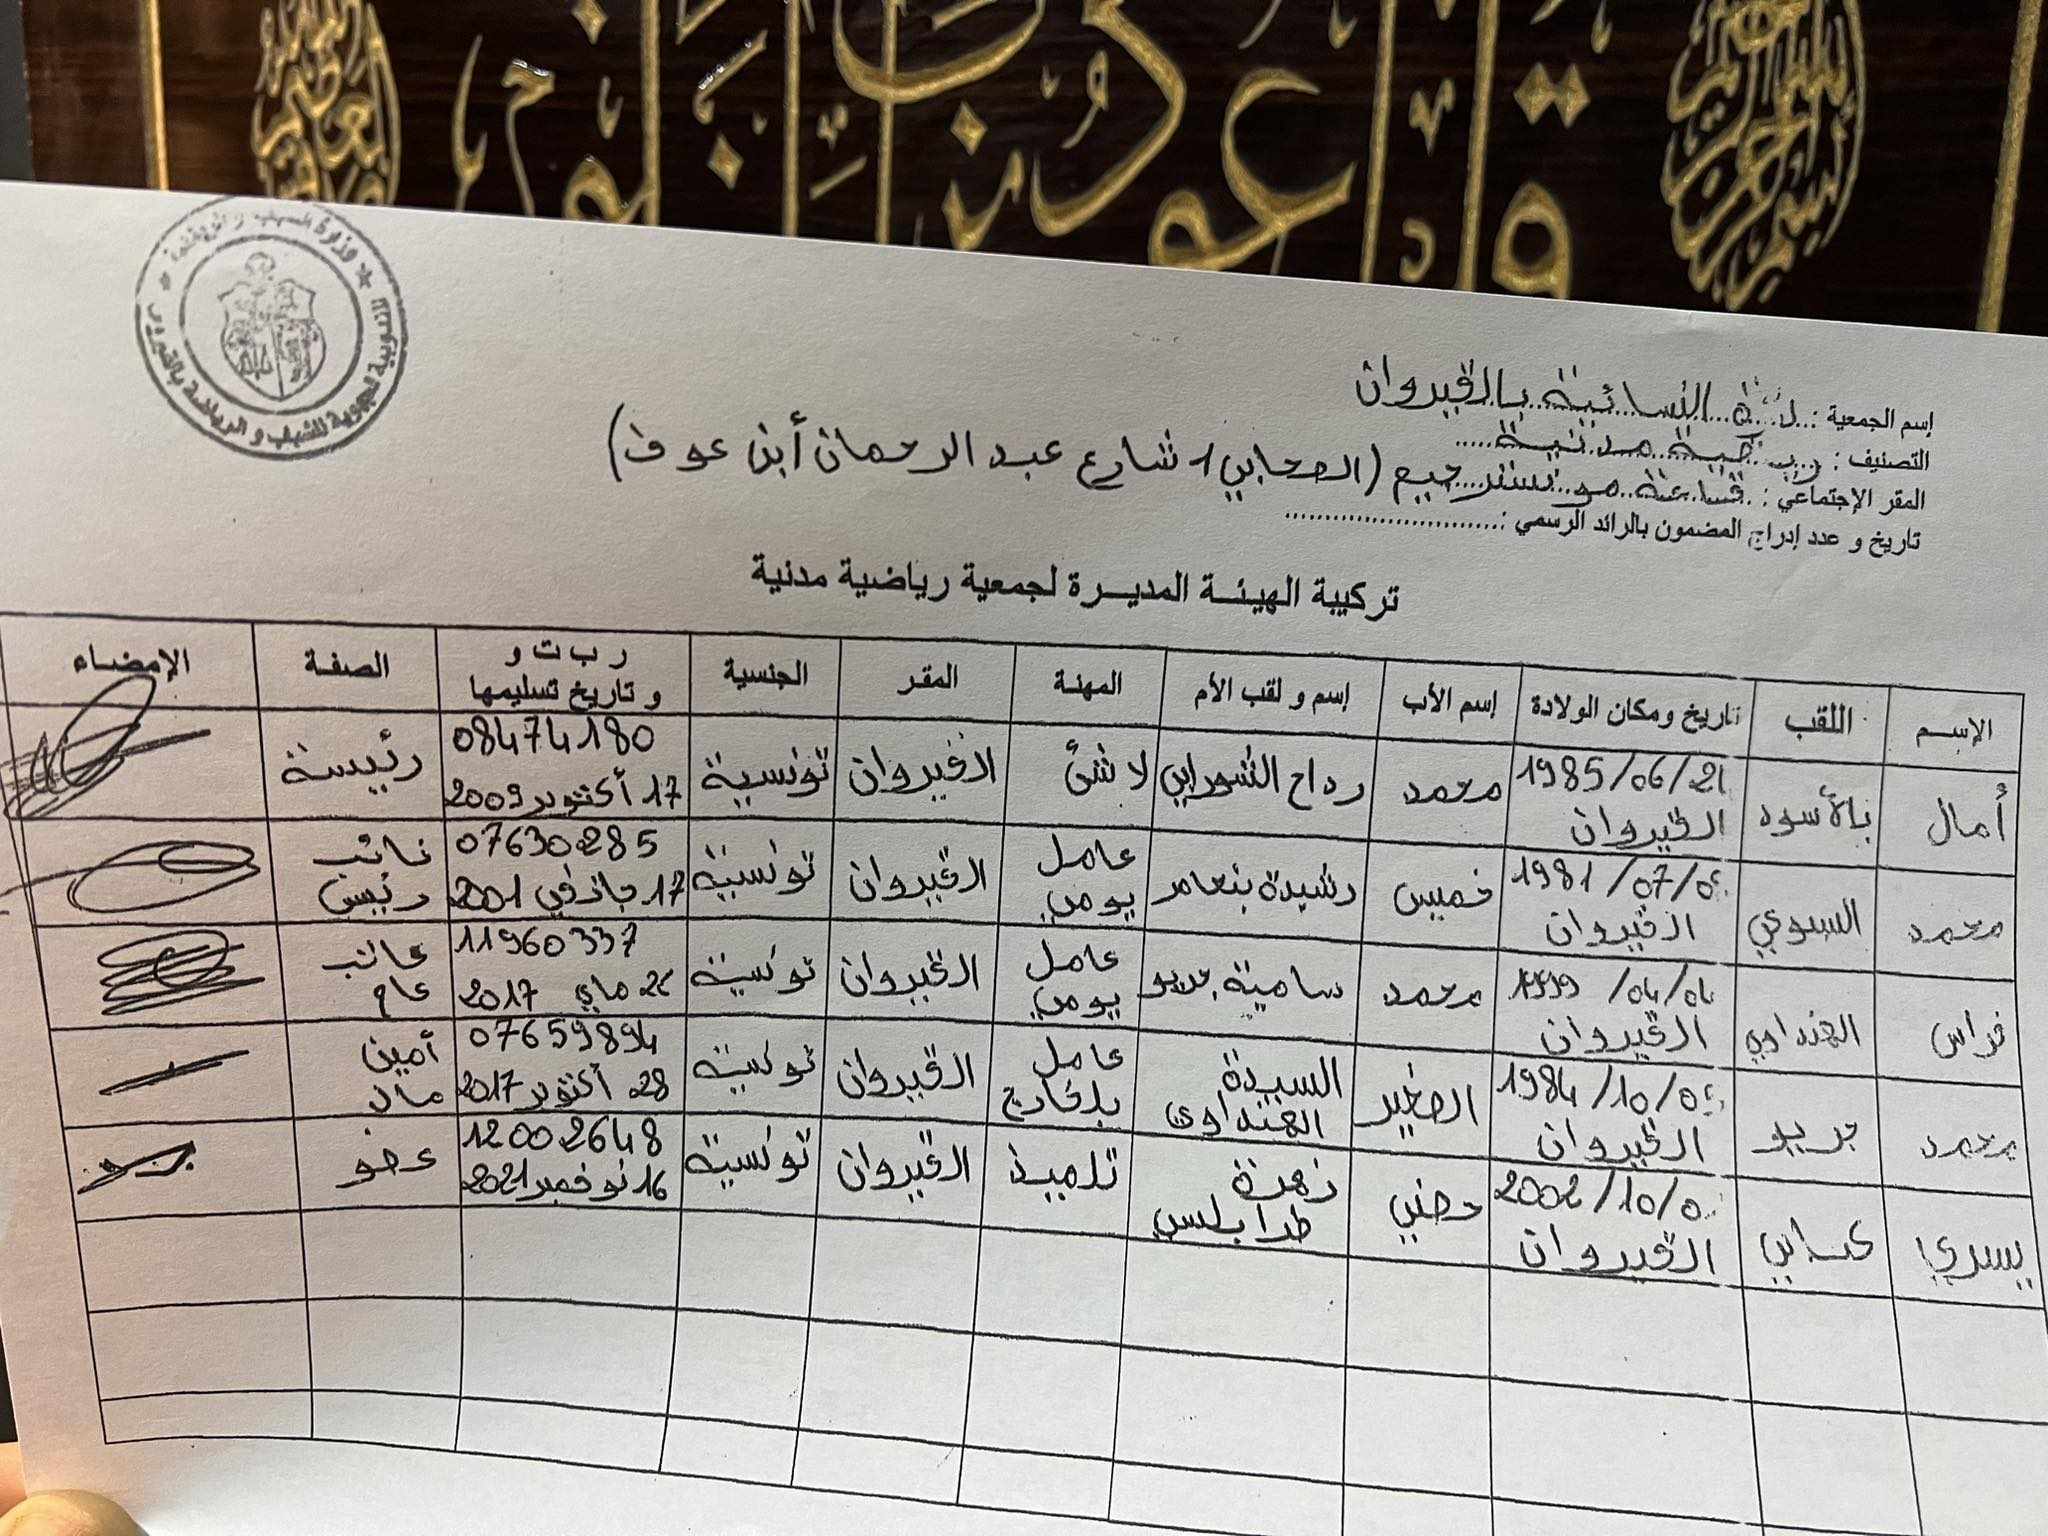 وزارة الشباب و الرياضة
المندوبية الجهوية للشباب و الرياضة بالقيروان
إسم الجمعية : النسائية بالقيروان
التصنيف : مدنية
المقر الإجتماعي : قاعة (الصحابي / شارع عبد الرحمان أبن عوف)
تاريخ و عدد إدراج المضمون بالرائد الرسمي :
تركيبة الهيئة المديرة لجمعية رياضية مدنية
الإسم اللقب تاريخ ومكان الولادة إسم الأب إسم و لقب الأم المهنة المقر الجنسية ر ب ت و و تاريخ تسليمها الصفة الإمضاء
أمال بالأسود 1985/06/21 القيروان محمد رداح الشورابي لا شئ القيروان تونسية 08474180 17 أكتوبر 2009 رئيسة
محمد السبوعي 1981/07/ القيروان خميس رشيدة بنعامر عامل يومي القيروان تونسية 07630285 17 جانفي 2001 نائب رئيس
فراس الهنداوي /04/04 القيروان محمد سامية عامل يومي القيروان تونسية 11960337 ماي 2017 كاتب عام
محمد 1984/10/ القيروان الصغير السيدة الهنداوي عامل بالخارج القيروان تونسية 07659894 28 أكتوبر 2017 أمين مال
يسري 2002/10/ القيروان حسني زهرة طرابلسي تلميذ القيروان تونسية 12002648 16 نوفمبر 2021 عضو